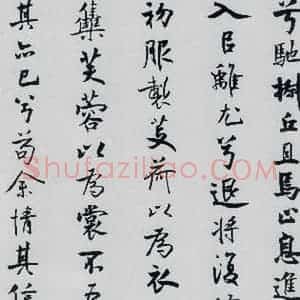 兮馳椒丘且焉止息進
入以離尤兮退將復
初服製芰荷以為衣
集芙蓉以為裳不吾
其亦已兮苟余情其信
Shufaziliao.com